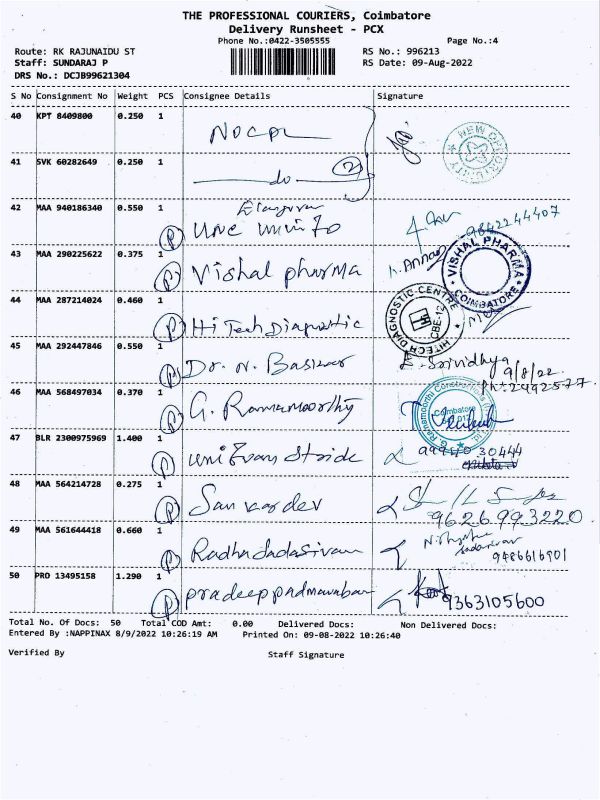 THE PROFESSIONAL COURIERS, Coimbatore
Delivery Runsheet - PCX
Phone No.:0422-3505555 Page No.:4
Route: RK RAJUNAIDU ST RS No.: 996213
Staff: SUNDARAJ P RS Date: 09-Aug-2022
DRS No.: DCJB99621304
S No Consignment No Weight PCS Consignee Details Signature
40 KPT 8409800 0.250 1
NEW OPPORTUNITY
41 SVK 60282649 0.250 1
do 2
42 MAA 940186340 0.550 1
P 9842244407
43 MAA 290225622 0.375 1
P Vishal pharma VISHAL PHARMA COIMBATORE
44 MAA 287214024 0.460 1
P Hi Tech Diagnostic HITECH DIAGNOSTIC CENTRE CBE-12
45 MAA 292447846 0.550 1
P Dr. N. Baskar E. Srividhya
9/8/22
Ph: 2492577
46 MAA 568497034 0.370 1
P G. Ramamoorthy Coimbatore
47 BLR 2300975969 1.400 1
P 99940 30444
48 MAA 564214728 0.275 1
P Sankardev
9626993220
49 MAA 561644418 0.660 1
P Radha Sadasivam
9486616901
50 PRO 13495158 1.290 1
P 9363105600
Total No. Of Docs: 50 Total COD Amt: 0.00 Delivered Docs: Non Delivered Docs:
Entered By :NAPPINAX 8/9/2022 10:26:19 AM Printed On: 09-08-2022 10:26:40
Verified By Staff Signature